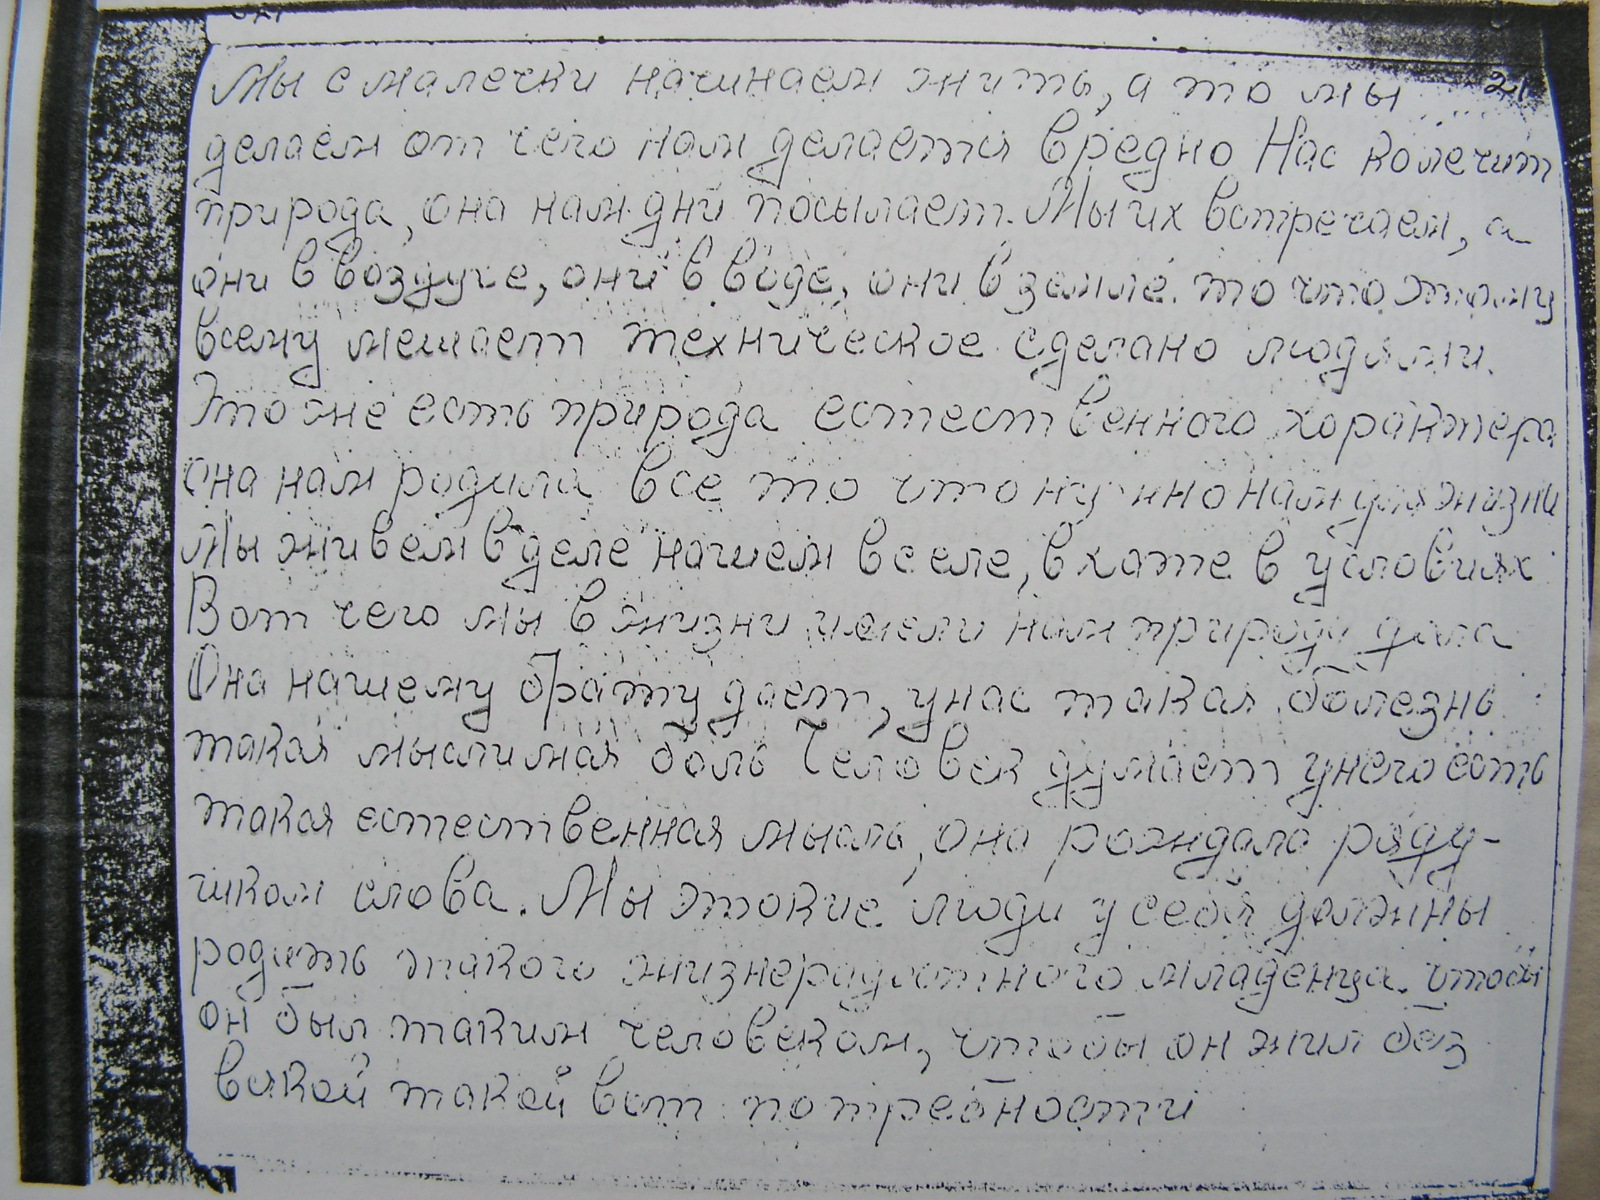 21
Мы с малечки начинаем жить, а то мы
делаем от чего нам делается вредно Нас колечит
природа, она нам дни посылает. Мы их встречаем, а
они в воздухе, они в воде, они в земле. то что этому
всему мешает техническое сделано людьми.
Это же не есть природа естественного характера
она нам родила все то что нужно нам для жизни
Мы живем в деле нашем в селе, в хате в условиях
Вот чего мы в жизни имели нам природа дала
Она нашему брату дает, у нас такая болезнь
такая мыслимая боль Человек думает у него есть
такая естественная мысль, она рождала
слова. Мы этакие люди у себя должны
родить такого жизнерадостного младенца. чтобы
он был таким человеком, чтобы он жил без
всякой такой вот потребности